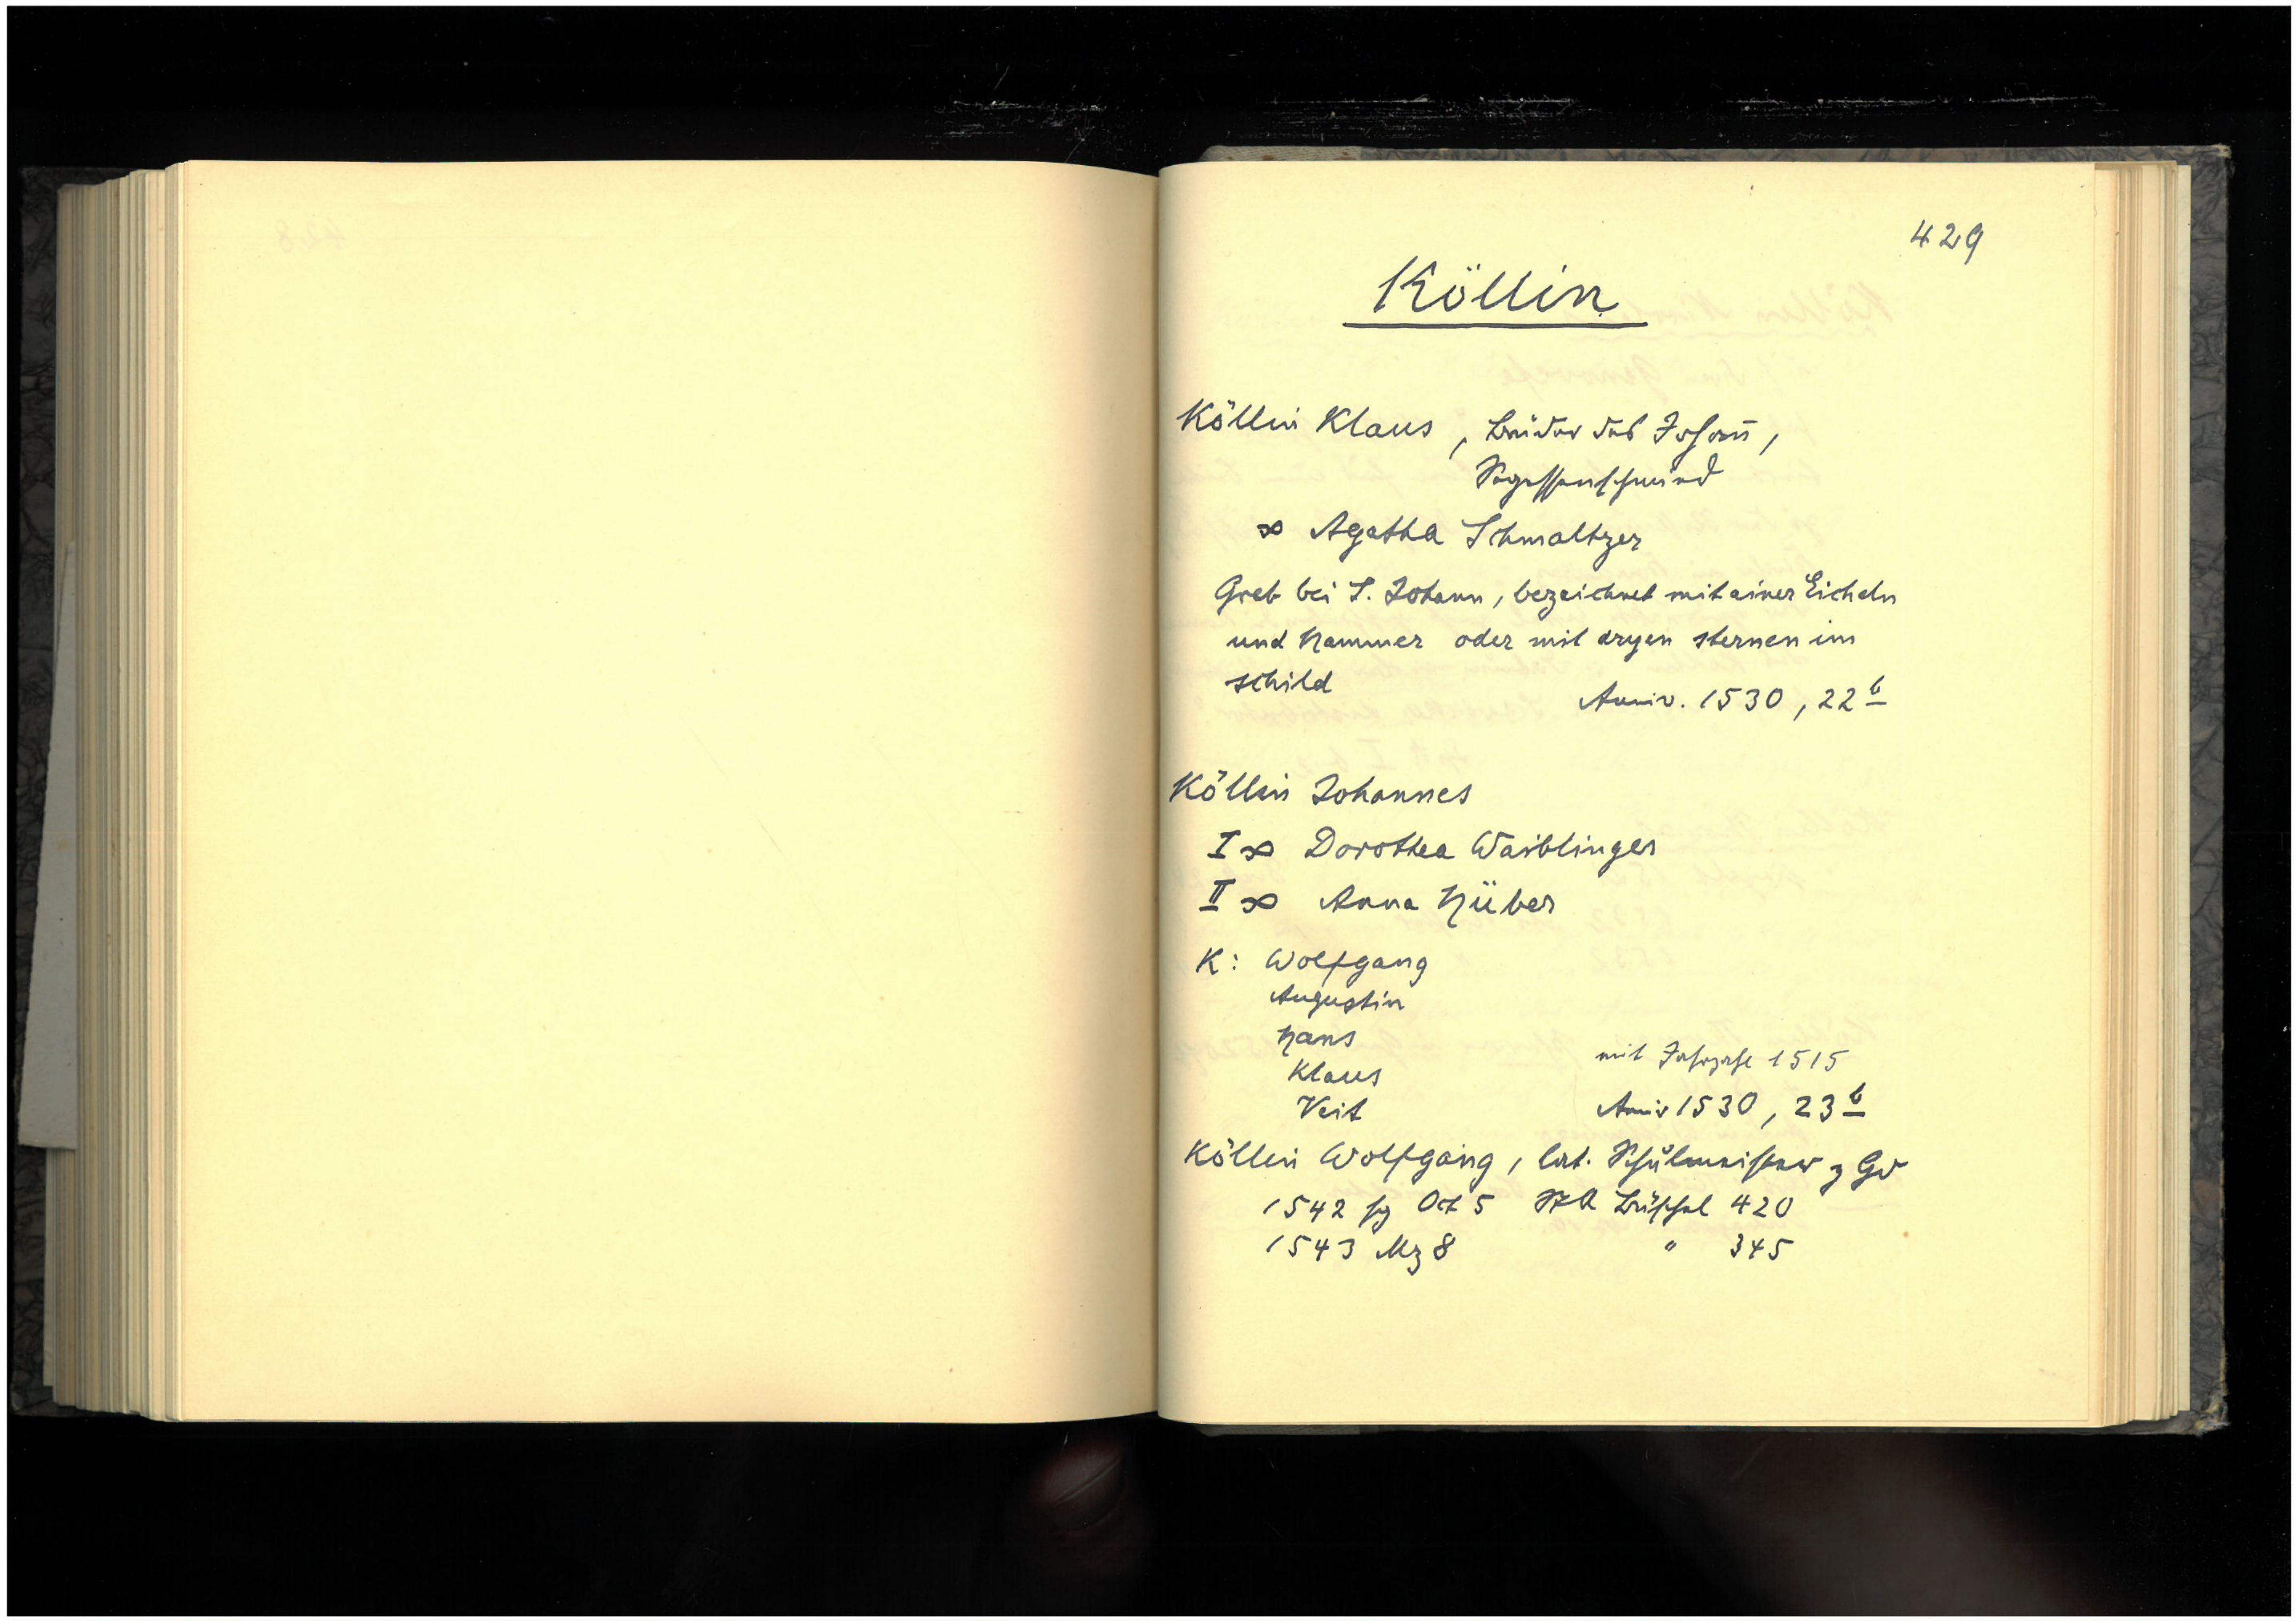 429
Köllin
Köllin Klaus, Bruder des Johann,
Segessenschmied
∞ Agatha Schmaltzer
Greb bei S. Johann, bezeichnet mit einer Eicheln
und hammer oder mit dryen sternen im
schild
Anniv. 1530, 22 b
Köllin Johannes
I ∞ Dorothea Waiblinger
II ∞ Anna Hüber
K: Wolfgang
Augustin
Hans
Klaus
mit Jahrzahl 1515
Veit
Aniv 1530, 23 b
Köllin Wolfgang, lat. Schulmeister z Gd
1542 Oct 5 StA Büschel 420
1543 Mz 8 " 345